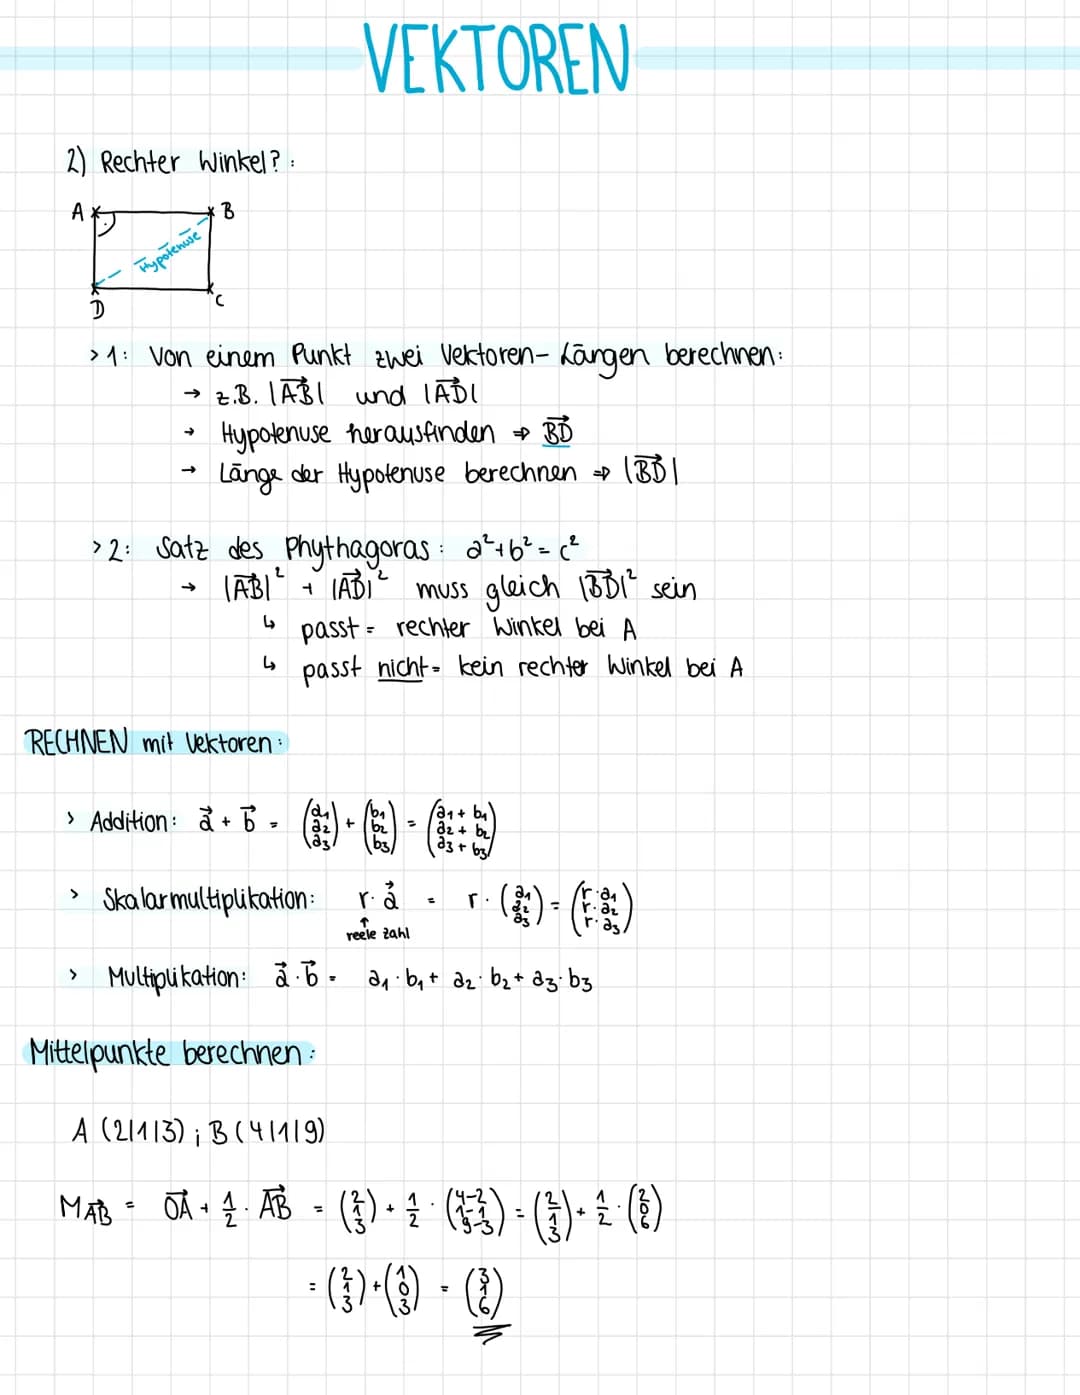 VEKTOREN
2) Rechter Winkel? :
A B
Hypotenuse
D C
> 1: Von einem Punkt zwei Vektoren- Längen berechnen:
→ z.B. |AB⃗| und |AD⃗|
→ Hypotenuse herausfinden ⇒ BD⃗
→ Länge der Hypotenuse berechnen ⇒ |BD⃗|
> 2: Satz des Phythagoras: a²+b² = c²
→ |AB⃗|² + |AD⃗|² muss gleich |BD⃗|² sein
↳ passt = rechter Winkel bei A
↳ passt nicht = kein rechter Winkel bei A
RECHNEN mit Vektoren:
> Addition: a⃗ + b⃗ = (a1 a2 a3) + (b1 b2 b3) = (a1 + b1 a2 + b2 a3 + b3)
> Skalarmultiplikation: r · a⃗ = r · (a1 a2 a3) = (r·a1 r·a2 r·a3)
↑
reele Zahl
> Multiplikation: a⃗ · b⃗ = a1 · b1 + a2 · b2 + a3 · b3
Mittelpunkte berechnen:
A (2|1|3) ; B (4|1|9)
M AB⃗ = OA⃗ + 1/2 · AB⃗ = (2 1 3) + 1/2 · (4-2 1-1 9-3) = (2 1 3) + 1/2 · (2 0 6)
= (2 1 3) + (1 0 3) = (3 1 6)